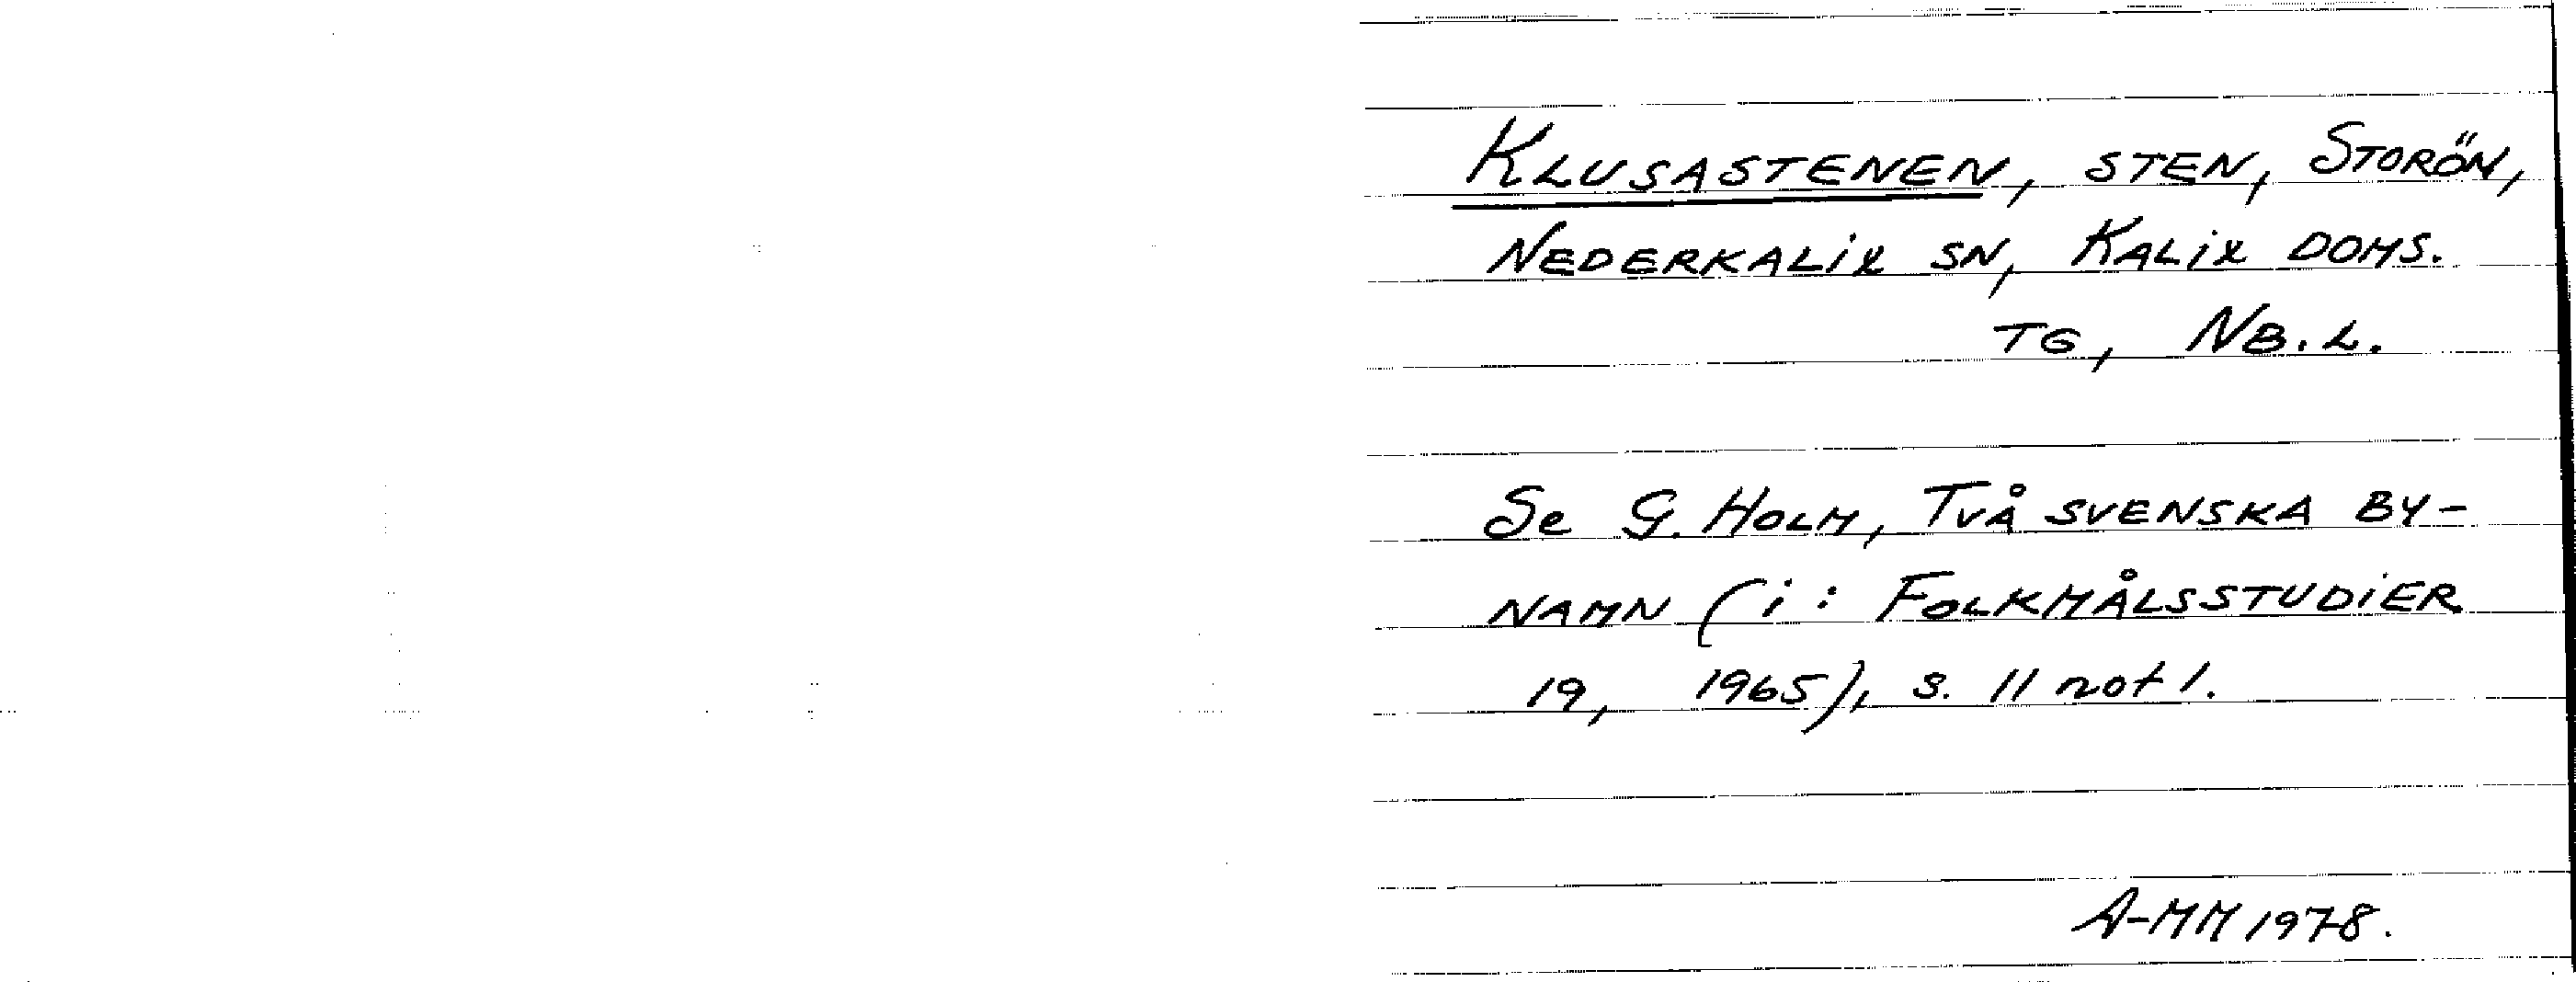 KLUSASTENEN, STEN, STORÖN,
NEDERKALIX SN, KALIX DOMS.
TG, NB.L.
Se G. HOLM, TVÅ SVENSKA BY-
NAMN (i: FOLKMÅLSSTUDIER
19, 1965), s. 11 not 1.
A-MM 1978.